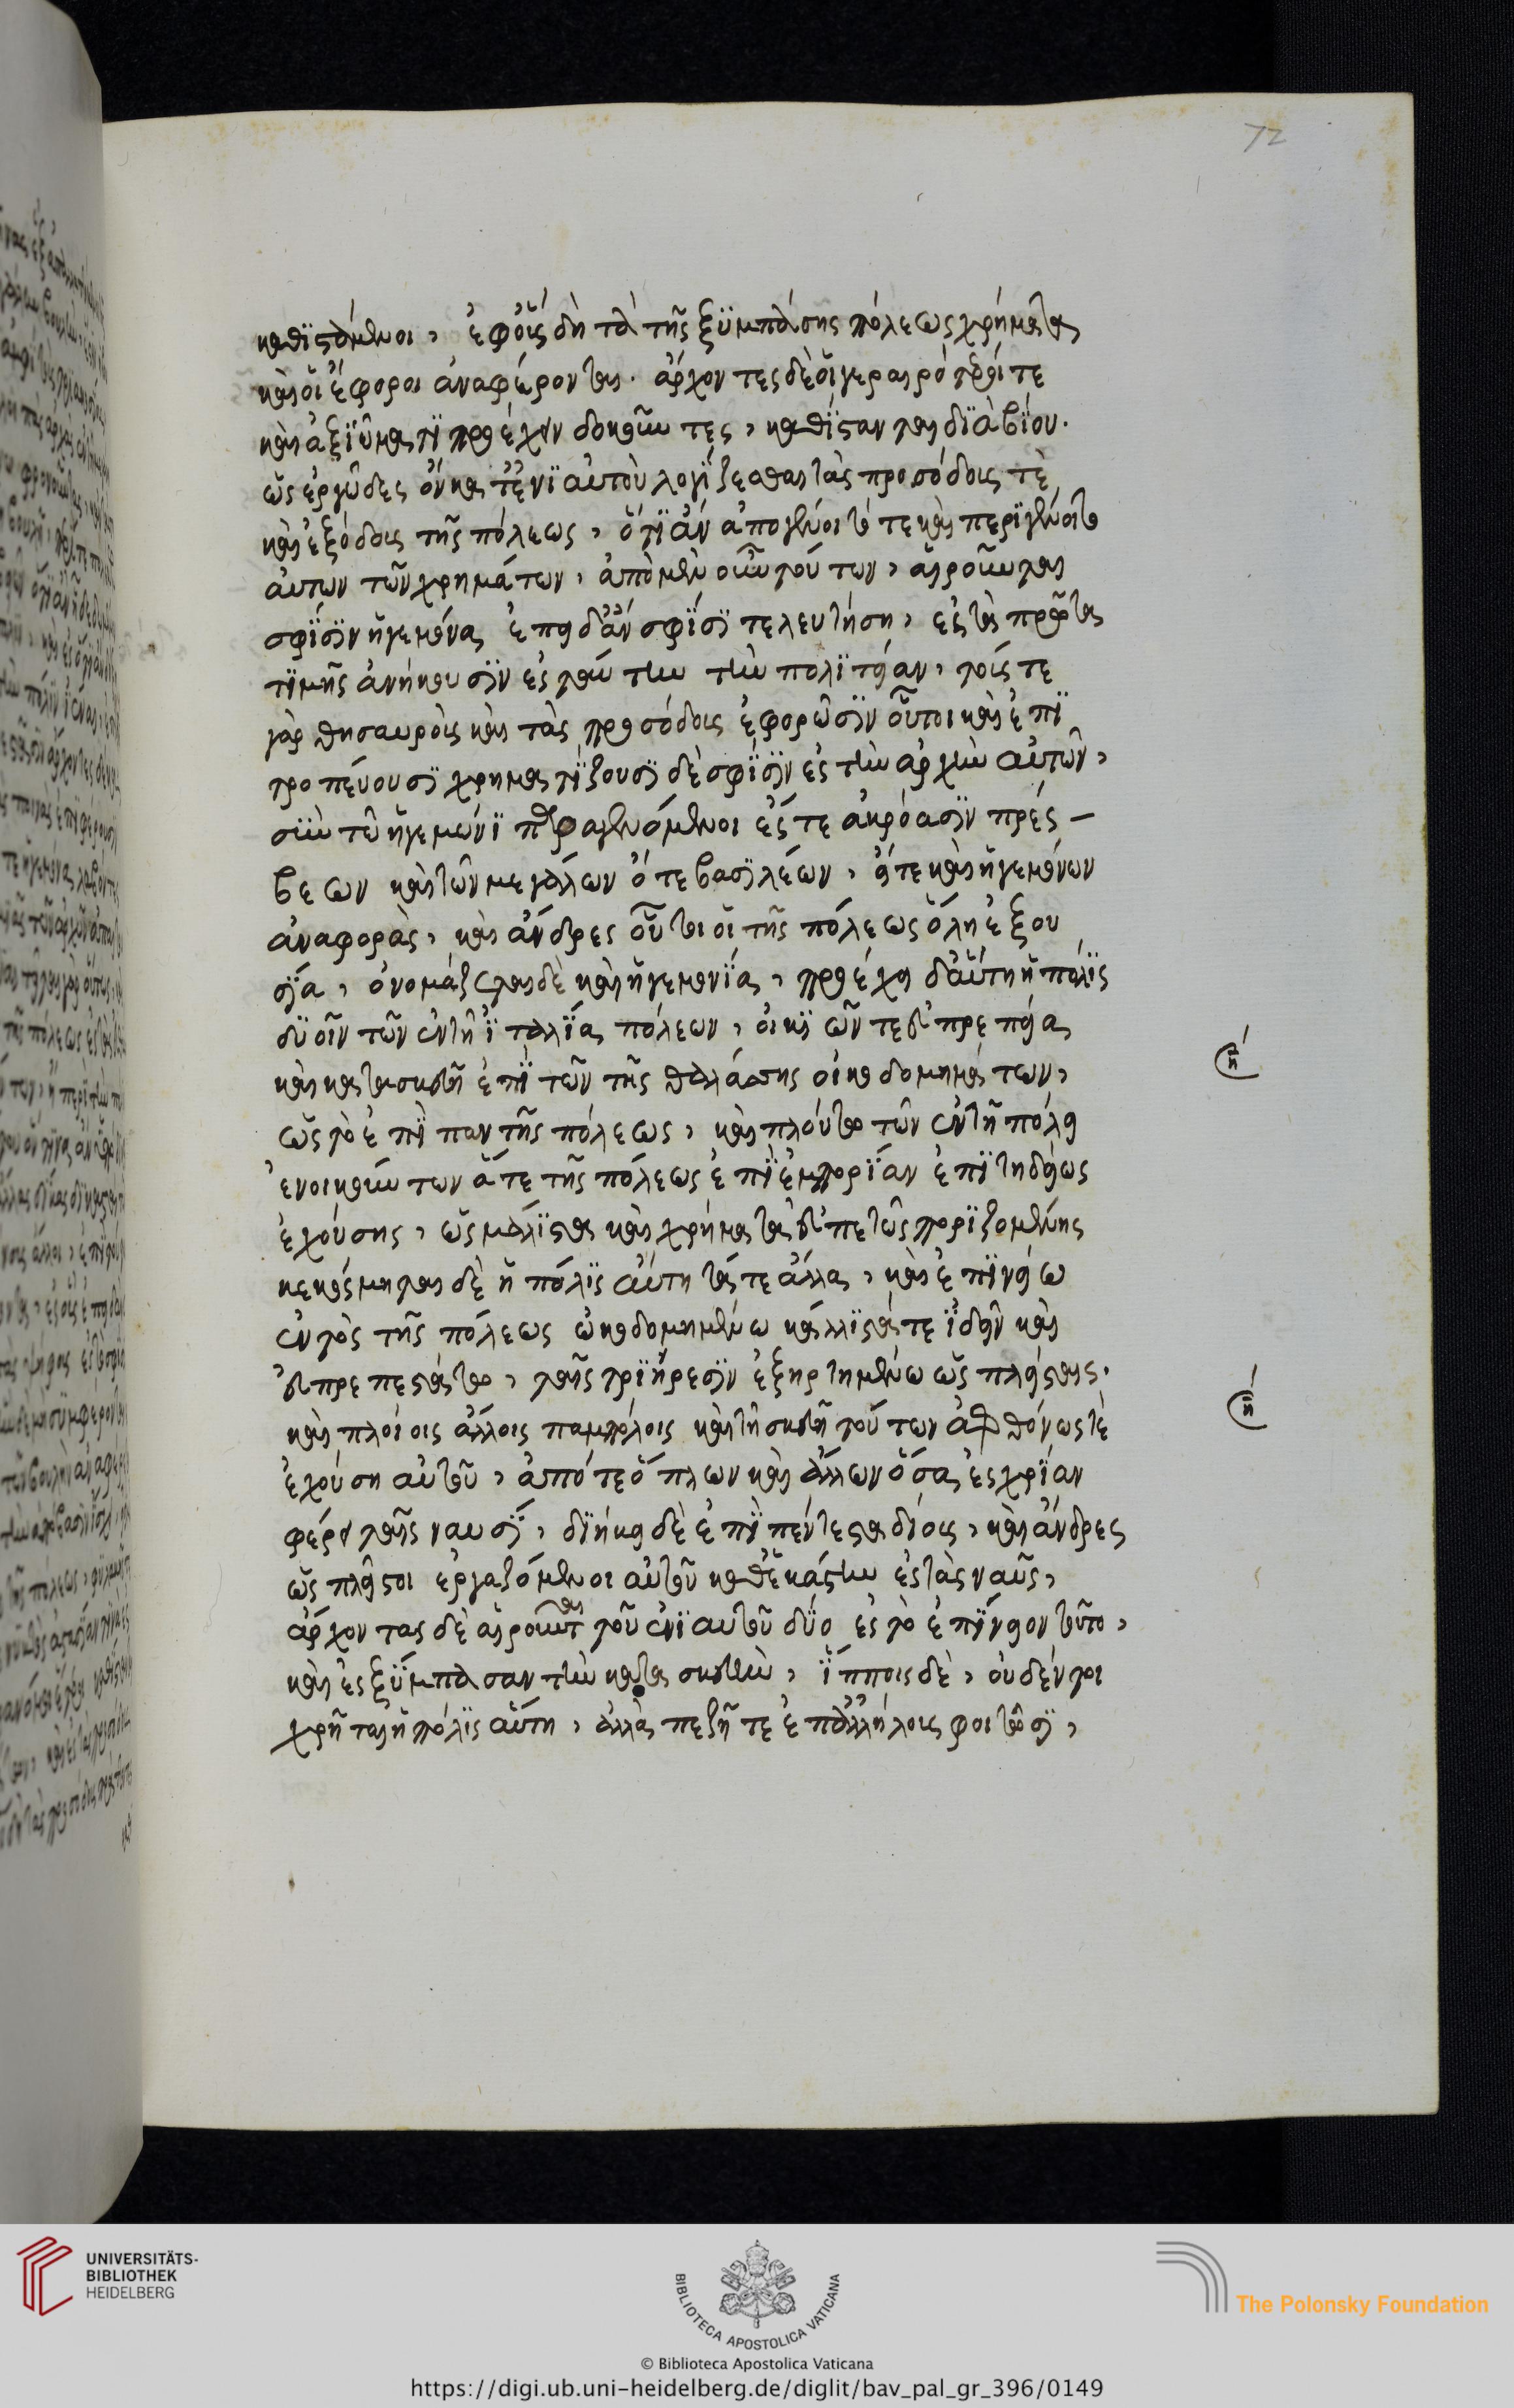 καθϊστάμενοι, ἐφ' οἷς δὴ τὰ τῆς ξϋμπάσης πόλεως χρήματα
καὶ οἱ ἔφοροι ἀναφέρονται. ἄρχοντες δὲ οἱ γεραιρότατοί τε
καὶ ἀξϊώματϊ προέχειν δοκοῦντες, καθΐστανται δϊὰ βΐου.
ὡς ἐργῶδες ὂν κατ' ἐνϊαυτὸν λογΐζεσθαι τὰς προσόδους τὲ
καὶ ἐξόδους τῆς πόλεως, ὅτϊ ἂν ἀπογένοιτό τε καὶ περϊγένοιτο
αὐτων τῶν χρημάτων, ἀπὸ μὲν οὖν τούτων, αἱροῦνται
σφΐσϊν ἡγεμόνας ἐπειδὰν σφΐσϊ τελευτήση, ἐς τὰς πρῶτας
τϊμῆς ἀνήκουσϊν ἐς ταύτην τὴν πολϊτείαν, τούς τε
γὰρ θησαυροὺς καὶ τὰς προσόδους ἐφορῶσϊν οὗτοι καὶ ἐπϊ
τροπεύουσϊ χρηματΐζουσϊ δὲ σφΐσϊν ἐς τὴν ἀρχὴν αὐτῶν,
σϋν τῶ ἡγεμώνϊ παραγενόμενοι ἔς τε ἀκρόασϊν πρέσ-
βεων καὶ τῶν μεγάλων ὅτε βασϊλέων, ἅτε καὶ ἡγεμόνων
ἀναφορὰς, καὶ ἄνδρες οὗτοι οἱ τῆς πόλεως ὅλη ἐξου
σΐα, ὀνομάζεται δὲ καὶ ἡγεμονΐας, προέχει δ' αὕτη ἡ πόλϊς
δϋοῖν τῶν ἐν τῆ ἰταλΐα πόλεων, οἰκϊῶν τε εὐπρεπείας
καὶ κατασκευῆ ἐπΐ τῶν τῆς θαλάσσης οἰκοδομημάτων,
ὡς τὸ ἐπΐ παν τῆς πόλεως, καὶ πλούτο τῶν ἐν τῆ πόλει
ἐνοικούντων ἅτε τῆς πόλεως ἐπϊ ἐμπορΐαν ἐπϊτηδείως
ἐχούσης, ὡς μάλϊστα καὶ χρήματα εὐπετῶς πορϊζομένης
κεκόσμηται δὲ ἡ πόλϊς αὕτη τά τε ἄλλα, καὶ ἐπϊνείω
ἐντὸς τῆς πόλεως ὠκοδομημένω κάλλϊστά τε ἰδεῖν καὶ
εὐπρεπεστάτο, ταῖς τρϊήρεσϊν ἐξηρτημένω ὡς πλείσταις.
καὶ πλοίοις ἄλλοις παμπόλοις καὶ τῆ σκευῆ τούτων ἀφθόνως τὲ
ἐχούση αὐτοῦ, ἀπό τε ὅπλων καὶ ἄλλων ὅσα ἐς χρΐαν
φέρει ταῖς ναυσΐ, δϊήκει δὲ ἐπΐ πέντε σταδΐους, καὶ ἄνδρες
ὡς πλεῖστοι ἐργαζόμενοι αὐτοῦ καθ' ἑκάστην ἐς τὰς ναῦς,
ἄρχοντας δὲ αἱροῦνται τοῦ ἐνϊαυτοῦ δΰο ἐς τὸ ἐπΐνειον τοῦτο,
καὶ ἐς ξΰμπασαν τὴν κατασκευὴν, ἵπποις δὲ, οὐδέν τοι
χρῆται ἡ πόλϊς αὕτη, ἀλλὰ πεζῆ τε ἐπ' ἀλλήλοις φοιτῶσϊ,
72
UNIVERSITÄTS-
BIBLIOTHEK
HEIDELBERG
BIBLIOTECA APOSTOLICA VATICANA
The Polonsky Foundation
© Biblioteca Apostolica Vaticana
https://digi.ub.uni-heidelberg.de/diglit/bav_pal_gr_396/0149